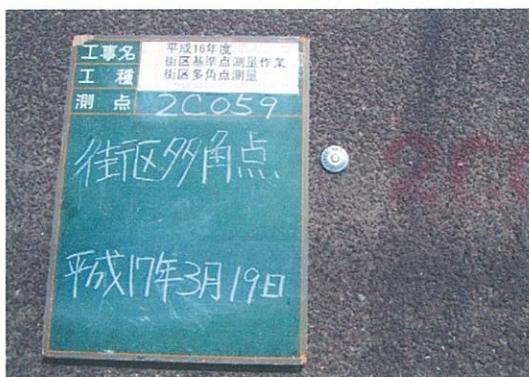 工事名 平成16年度
街区基準点測量作業
工種 街区多角点測量
測点 2C059
街区多角点
平成17年3月19日
2C0